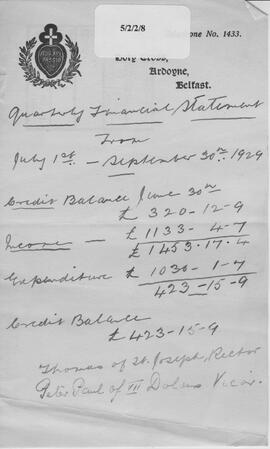 5/2/2/8
Telephone No. 1433.
Holy Cross,
Ardoyne,
Belfast.
Quarterly Financial Statement
From
July 1st - September 30th 1929
Credit Balance June 30th
£ 320-12-9
Income — £ 1133-4-7
£ 1453.17.4
Expenditure £ 1030-1-7
423-15-9
Credit Balance
£ 423-15-9
Thomas of St. Joseph, Rector
Peter Paul of VII Dolours Vicar.